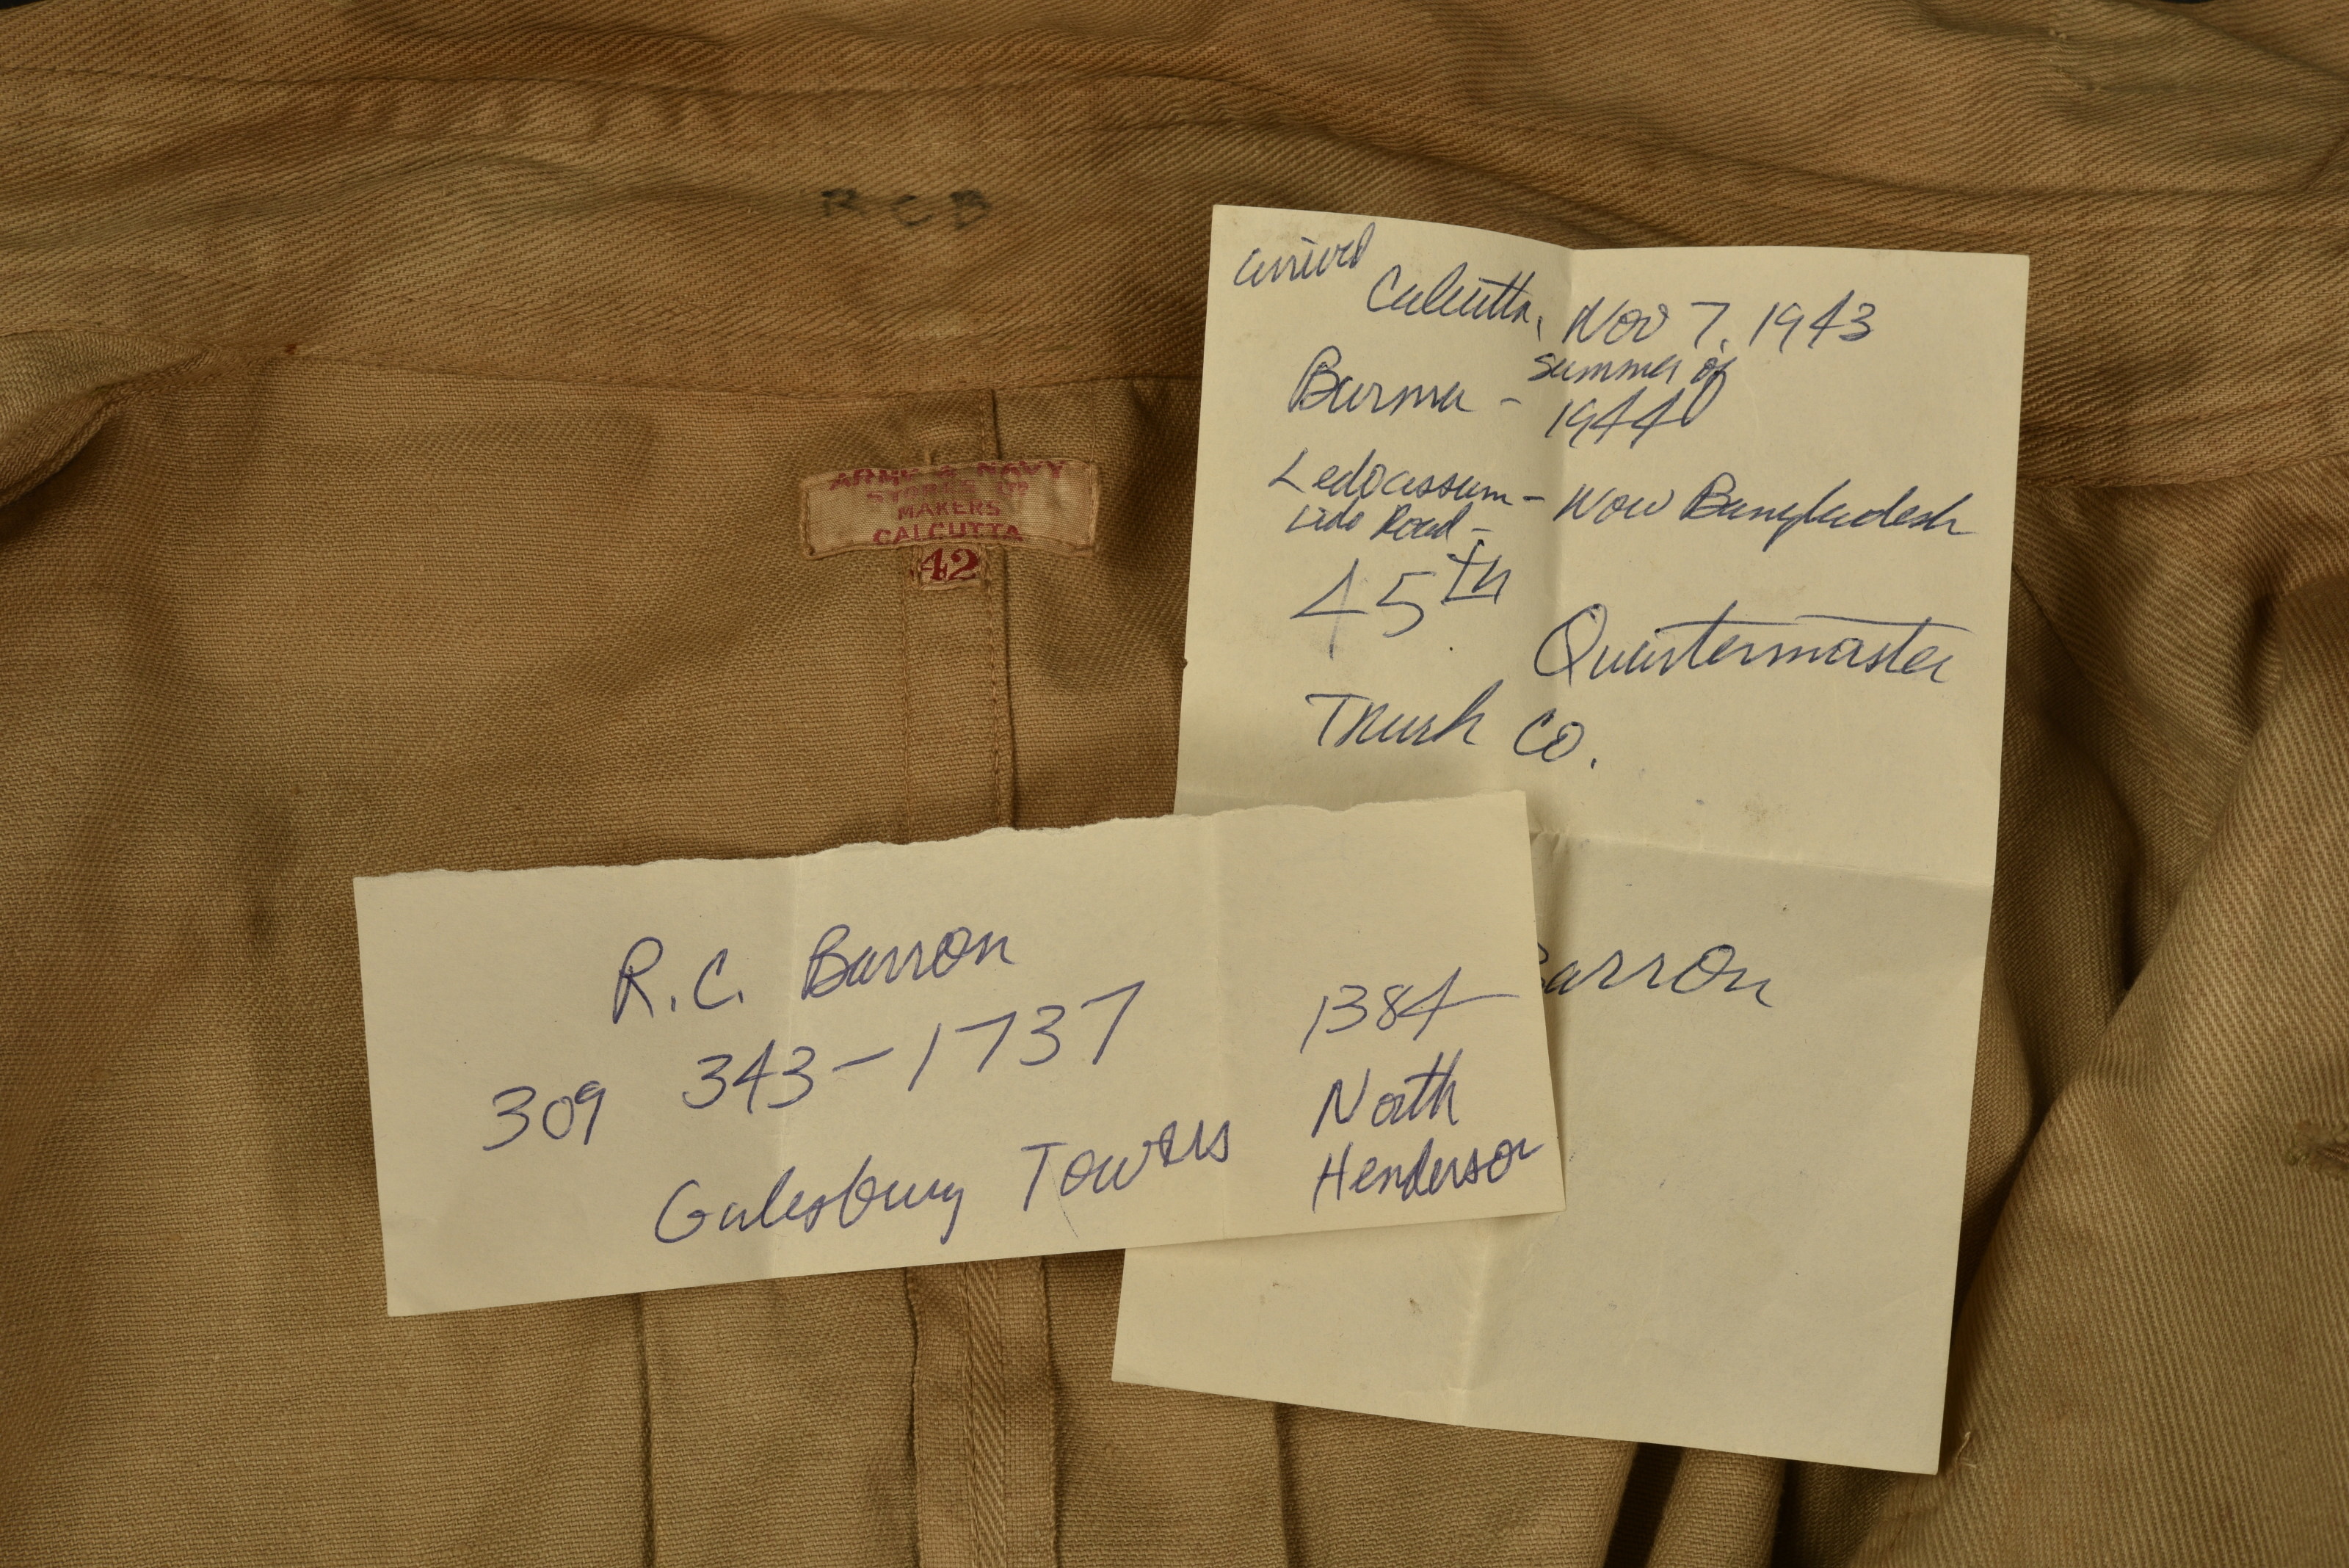 RCB
ARMY & NAVY
STORES LTD
MAKERS
CALCUTTA
42
arrived
Calcutta, Nov 7, 1943
Burma - summer of
1944
Ledo assam - Now Bangladesh
Lido Road -
45th
Quartermaster
Truck Co.
Barron
R.C. Barron
343-1737
309
Galesburg Towers
1384
North
Henderson